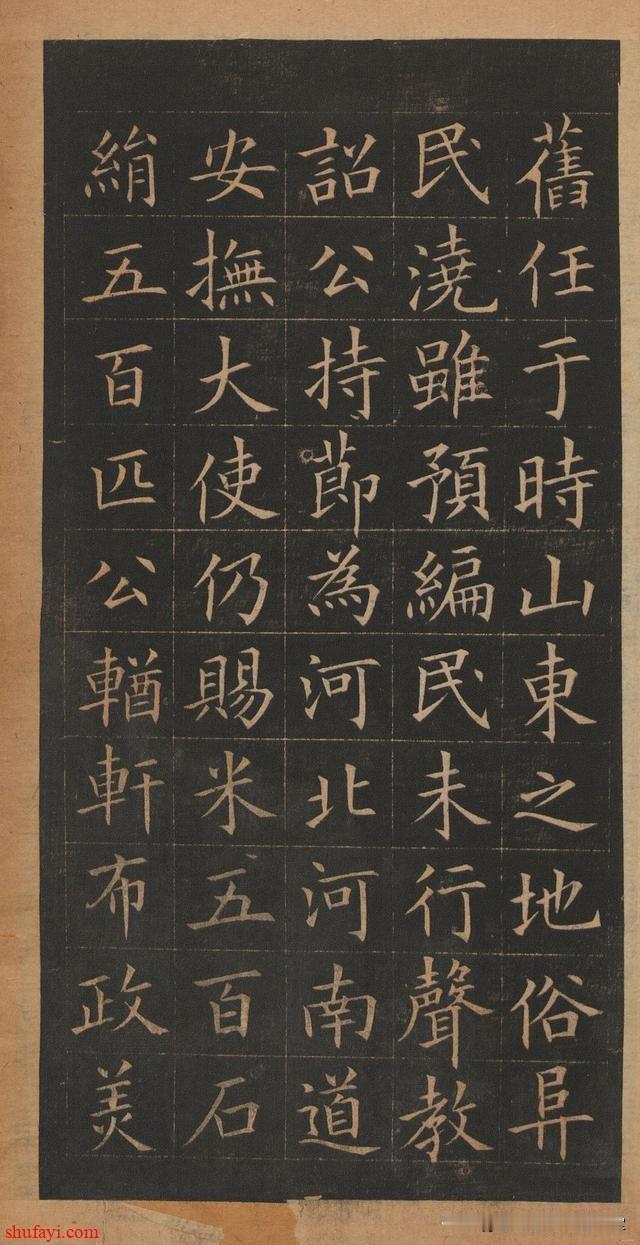 舊任于時山東之地俗阜
民澆雖預編民未行聲教
詔公持節為河北河南道
安撫大使仍賜米五百石
絹五百匹公輶軒布政美
shufayi.com